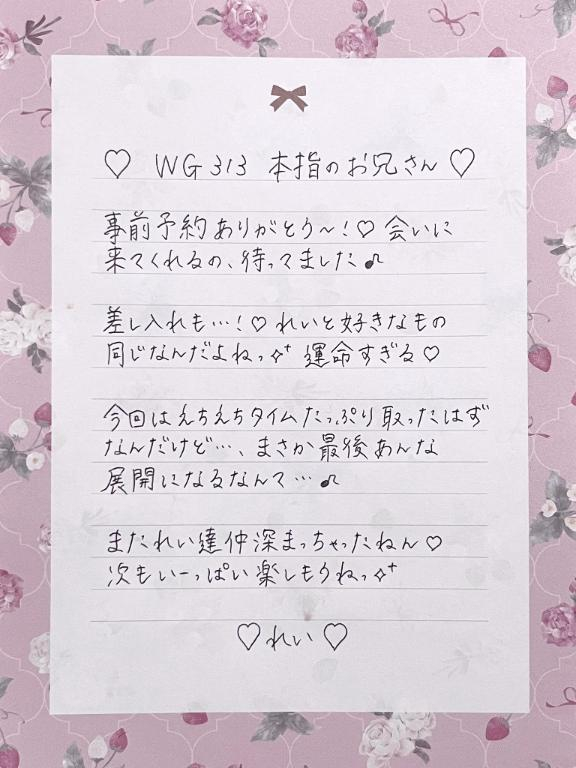 ♡ WG 313 本指のお兄さん ♡
事前予約ありがとう〜！♡ 会いに
来てくれるの、待ってました♪
差し入れも…！♡ れいと好きなもの
同じなんだよねっ✧⁺ 運命すぎる♡
今回はえちえちタイムたっぷり取ったはず
なんだけど…、まさか最後あんな
展開になるなんて…♪
またれい達仲深まっちゃったねん♡
次もいーっぱい楽しもうねっ✧⁺
♡れい♡